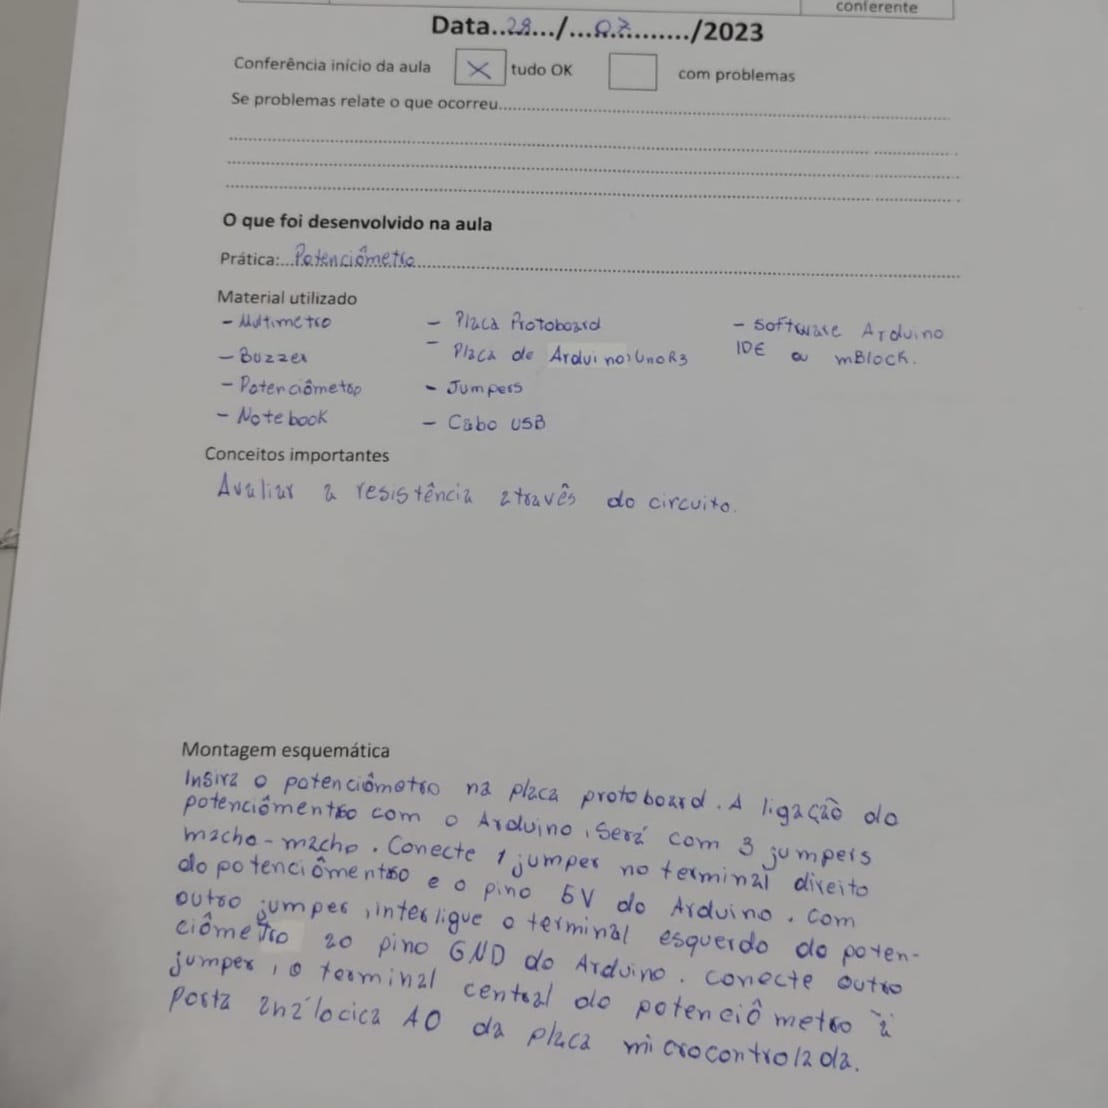 conferente
Data..28.../...07.........../2023
Conferência início da aula X tudo OK com problemas
Se problemas relate o que ocorreu
O que foi desenvolvido na aula
Prática:...Potenciômetro
Material utilizado
- Multimetro - Placa Protoboard - Software Arduino
- Buzzer - Placa de Arduino UnoR3 IDE ou mBlock.
- Potenciômetro - Jumpers
- Notebook - Cabo USB
Conceitos importantes
Avaliar a resistência através do circuito.
Montagem esquemática
Insira o potenciômetro na placa protoboard. A ligação do
potenciômentro com o Arduino, será com 3 jumpers
macho-macho. Conecte 1 jumper no terminal direito
do potenciômentro e o pino 5V do Arduino. Com
outro jumper, interligue o terminal esquerdo do poten-
ciômetro ao pino GND do Arduino. Conecte outro
jumper, o terminal central do potenciômetro à
Porta análocica A0 da placa microcontrolada.